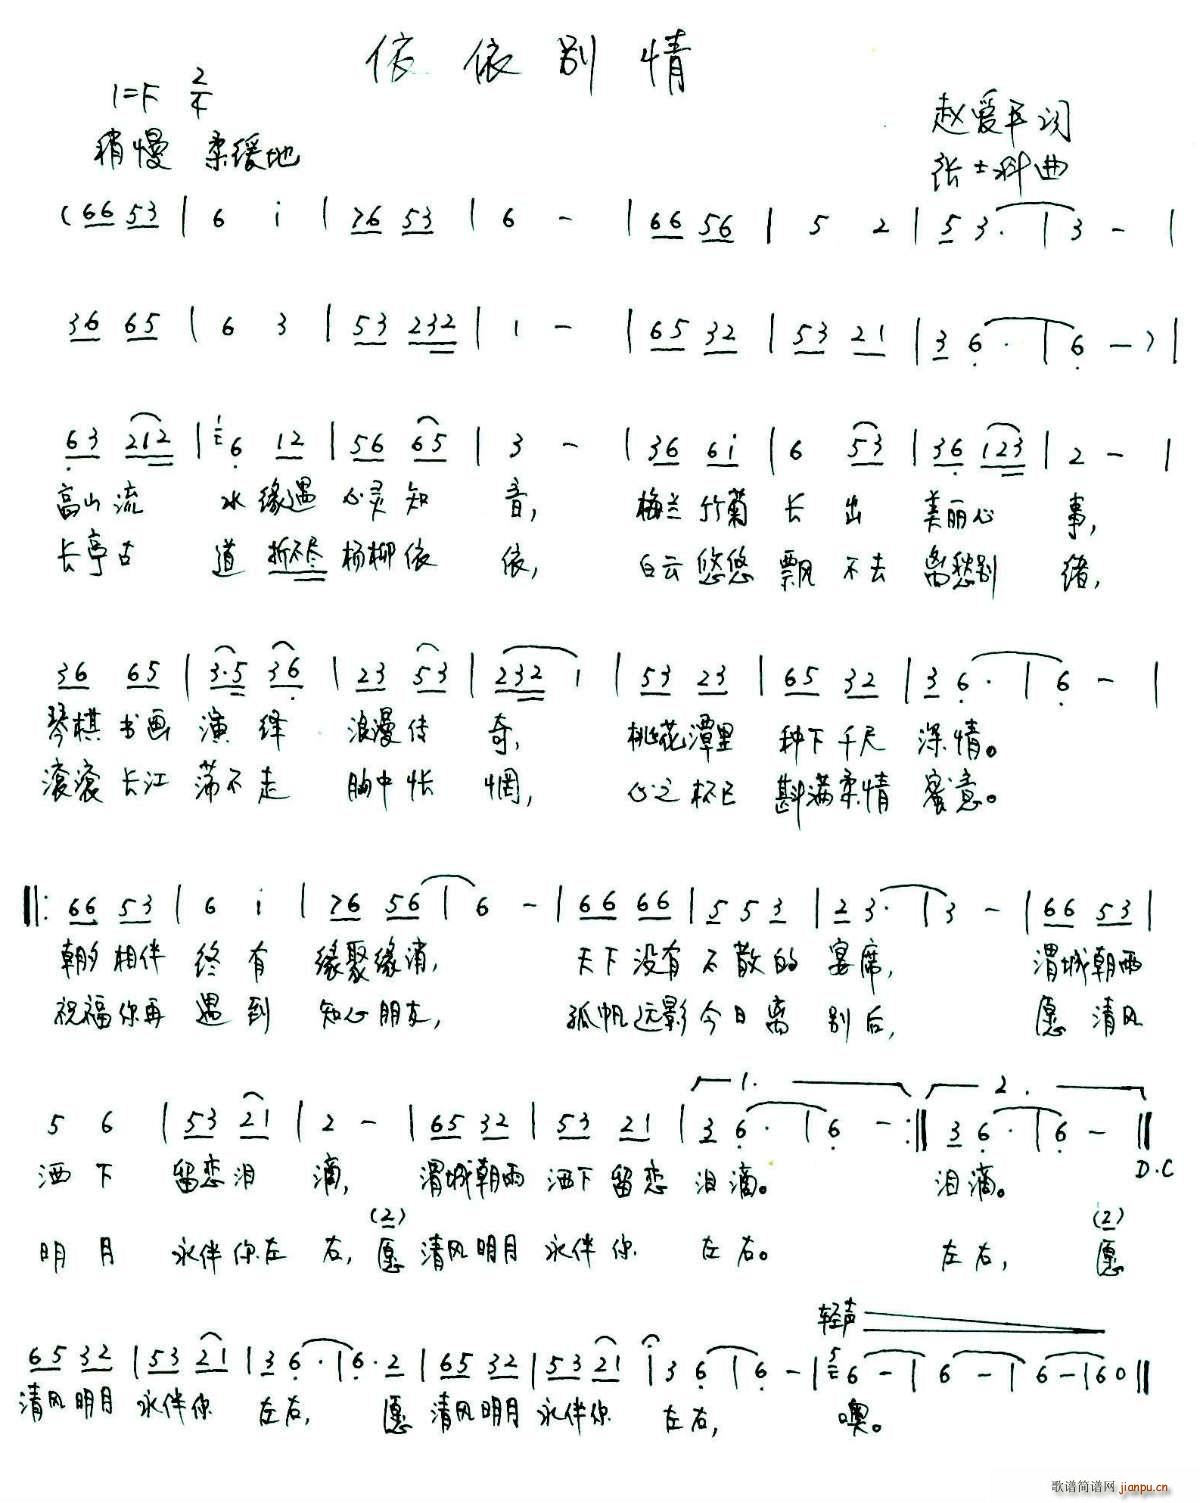 依依别情
1=F 2/4
赵爱平词
稍慢 柔缓地
张士科曲
(66 53 | 6 i | 76 53 | 6 - | 66 56 | 5 2 | 53· | 3 - |
36 65 | 6 3 | 53 232 | 1 - | 65 32 | 53 21 | 36· | 6 -) |
63 212 | 6 12 | 56 65 | 3 - | 36 6i | 6 53 | 36 123 | 2 - |
高山流 水缘遇心灵知 音, 梅兰竹菊长出 美丽心 事,
长亭古 道折不尽杨柳依 依, 白云悠悠飘不去离愁别 绪,
36 65 | 3·5 36 | 23 53 | 232 1 | 53 23 | 65 32 | 36· | 6 - |
琴棋书画演绎 浪漫传 奇, 桃花潭里 种下千尺 深情。
滚滚长江荡不走 胸中怅 惘, 心之杯已 斟满柔情 蜜意。
‖: 66 53 | 6 i | 76 56 | 6 - | 66 66 | 5 5 3 | 23· | 3 - | 66 53 |
朝夕相伴 终有 缘聚缘消, 天下没有不散的 宴席, 渭城朝雨
祝福你再 遇到 知心朋友, 孤帆远影今日离 别后, 愿清风
1. 2.
5 6 | 53 21 | 2 - | 65 32 | 53 21 | 36· | 6 - :‖ 36· | 6 - ‖
D.C
洒下 留恋泪 滴, 渭城朝雨 洒下留恋 泪滴。 泪滴。
(2) (2)
明月 永伴你左 右, 愿清风明月 永伴你 左右。 左右, 愿
轻声
65 32 | 53 21 | 36· | 6· 2 | 65 32 | 53 21 | 1 36 | 6 - | 6 - | 6 - | 6 - | 60 ‖
清风明月 永伴你 左右, 愿清风明月永伴你 左右, 噢。
歌谱简谱网 jianpu.cn